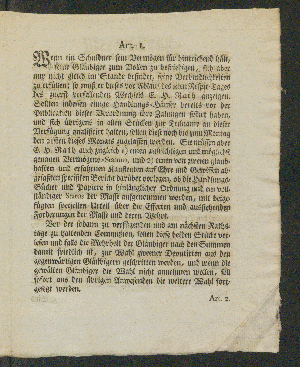 Art. 1.
Wenn ein Schuldner sein Vermögen für hinreichend hält,
seine Gläubiger zum Vollen zu befriedigen, sich aber
nur nicht gleich im Stande befindet, seine Verbindlichkeiten
zu erfüllen; so muß er dieses vor Ablauf des
des zuerst verfallenden Wechsels E. H. Rath anzeigen.
Sollten indessen einige Handlungs-Häuser bereits vor der
Publication dieser Verordnung ihre Zahlungen sistirt haben,
und sich übrigens in allen Stücken zur Theilnahme an dieser
Verfügung qualificirt halten, sollen diese noch bis zum Montag
den dieses Monats zugelassen werden. Sie müssen aber
E. H. Rath auch zugleich 1) einen aufrichtigen und möglichst
genauen Vermögens-Status, und 2) einen von zweien glaub-
haften und erfahrnen Kaufleuten auf Ehre und Gewissen ab-
gefaßten schriftlichen Bericht darüber vorlegen, ob die Handlungs-
Bücher und Papiere in hinlänglicher Ordnung und ein voll-
ständiger Status der Masse aufgenommen worden, mit beige-
fügtem speciellen Urtheil über die Effecten und ausstehenden
Forderungen der Masse und deren Werth.
Bey der sodann zu verfügenden und am nächsten Raths-
tage zu haltenden Commission, sollen diese beiden Stücke ver-
lesen und falls die Mehrheit der Gläubiger nach den Summen
damit friedlich ist, zur Wahl zweener Deputirten aus den
gegenwärtigen Gläubigern geschritten werden, und wenn die
gewählten Gläubiger die Wahl nicht annehmen wollen, soll
sofort aus den übrigen Anwesenden die weitere Wahl fort-
gesetzt werden.
Art. 2.